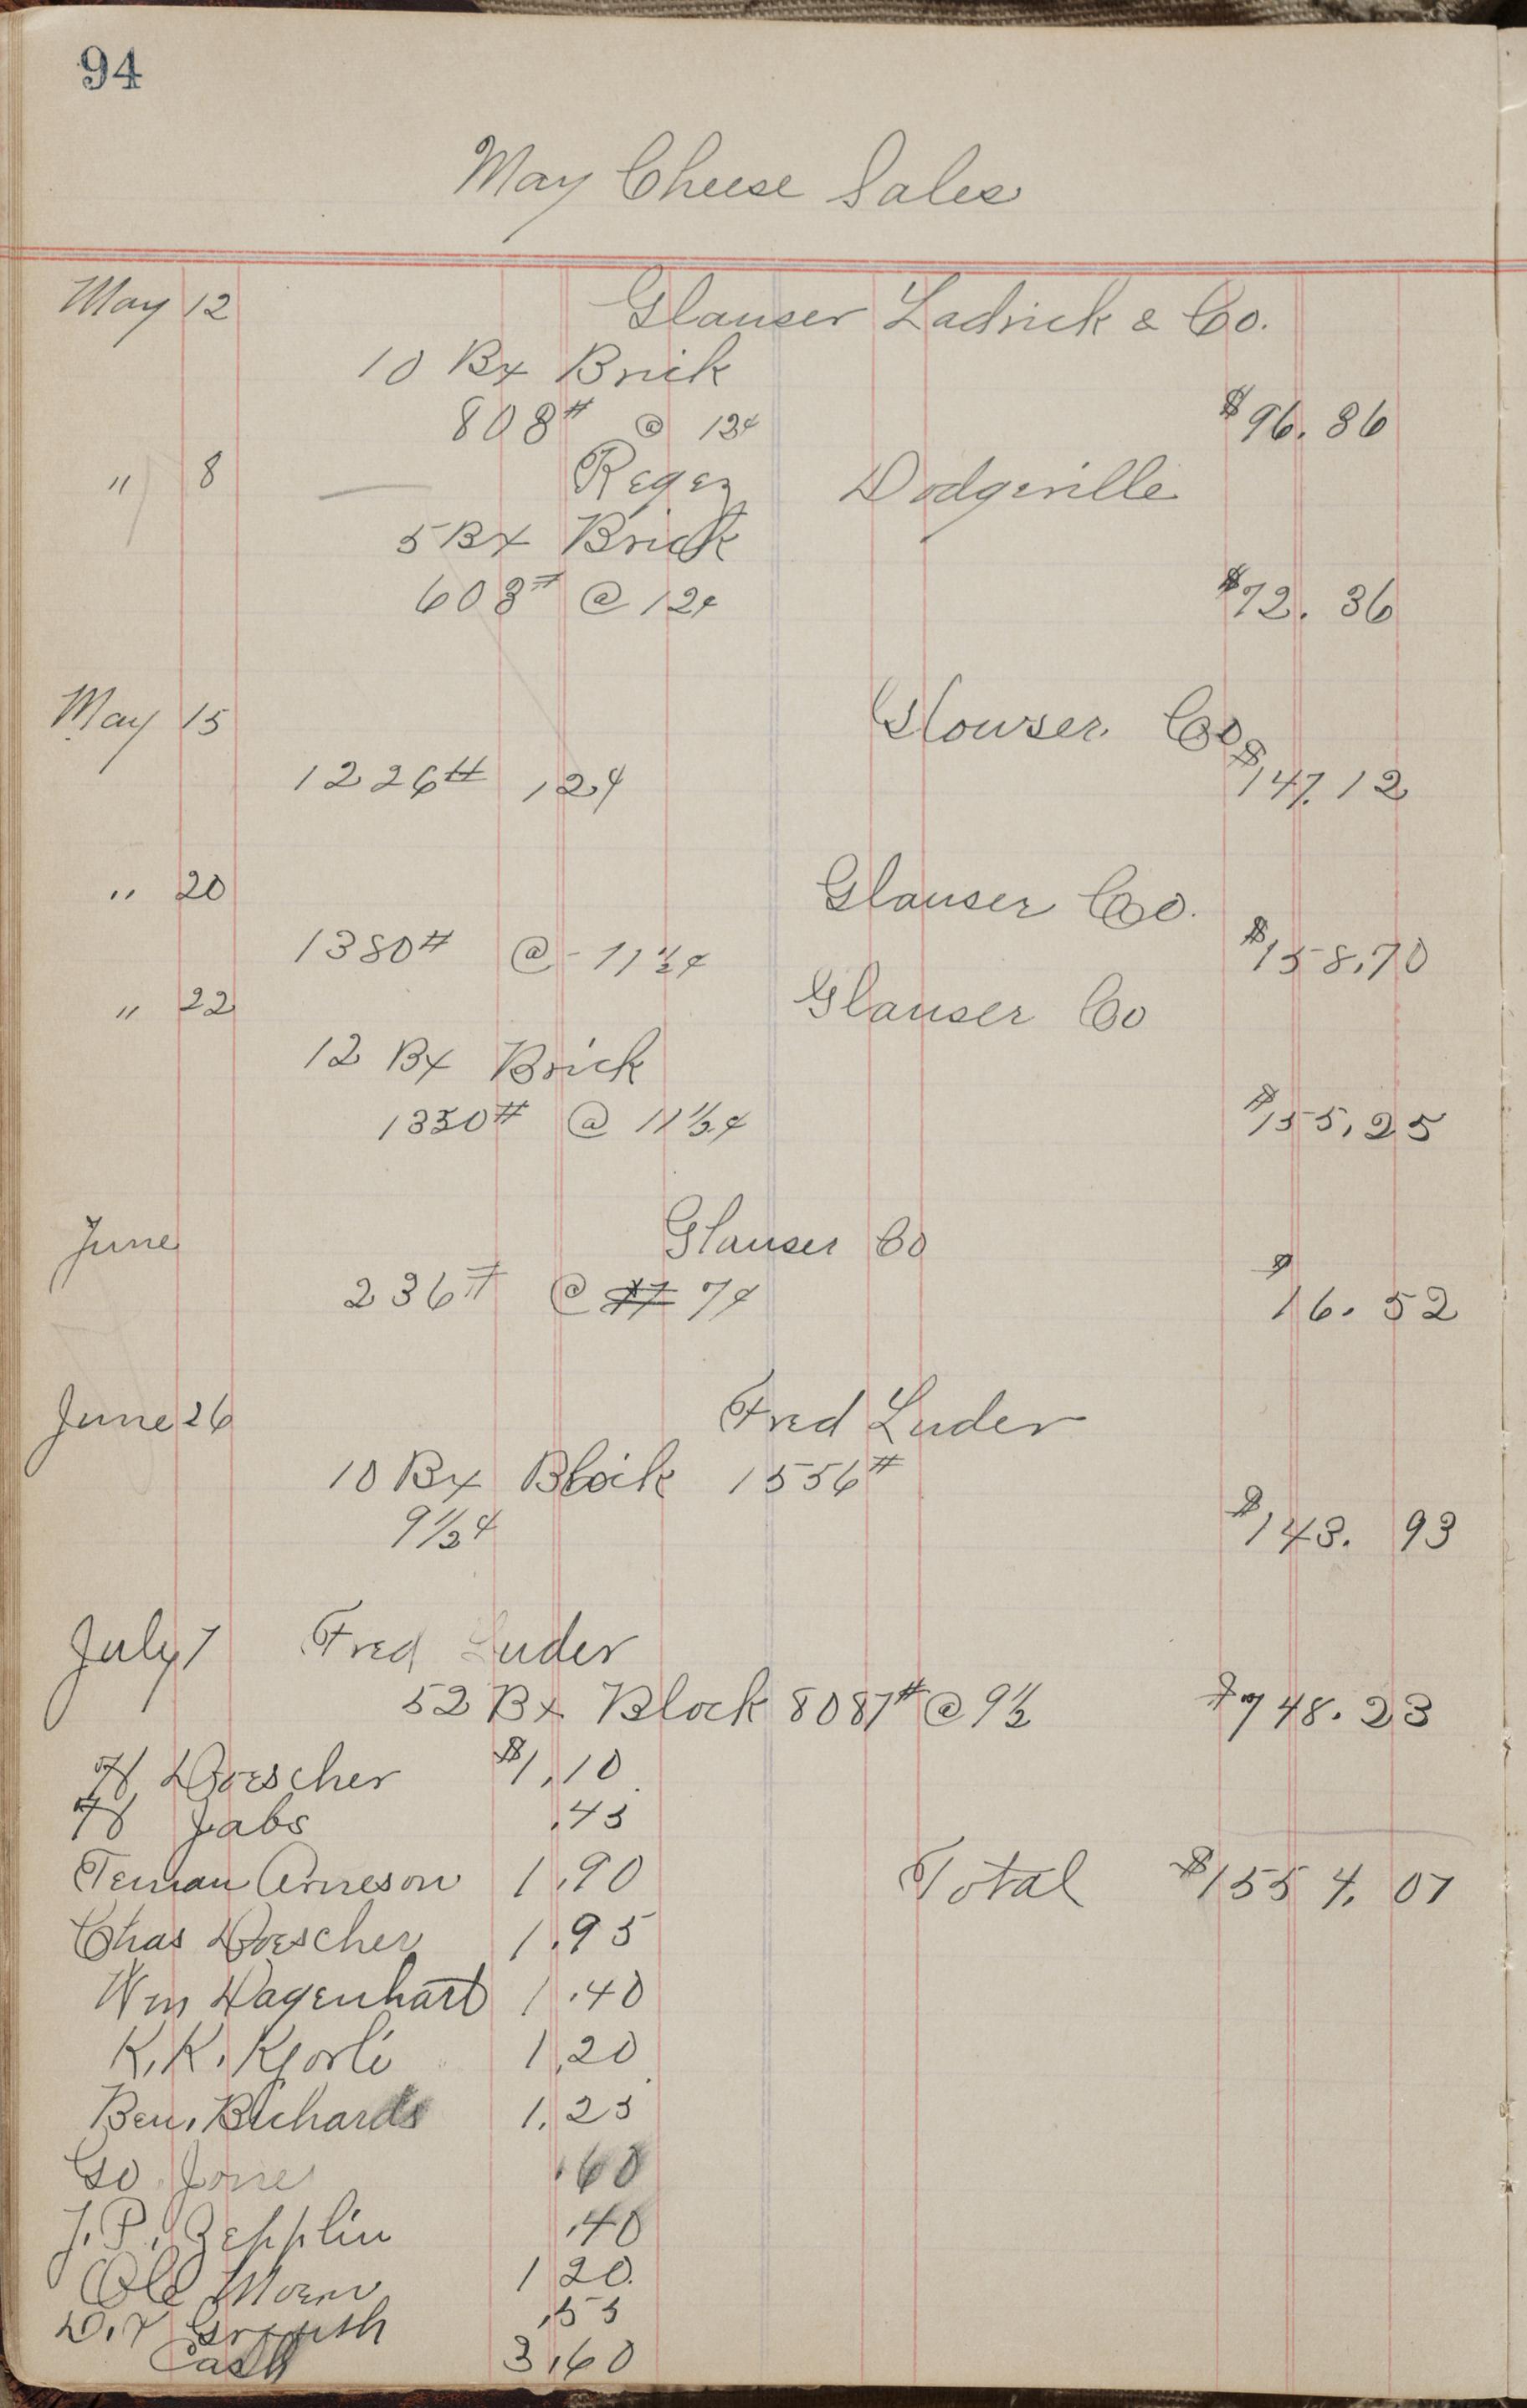 94
May Cheese Sales
May 12 Glauser Ladrick & Co.
10 Bx Brick
808# @ 12¢ $96.86
" 8 Regez Dodgeville
5 Bx Brick
603# @ 12¢ $72.36
May 15 Glouser Co
1226# 12¢ $147.12
" 20 Glauser Co.
1380# @ 11½¢ $158.70
" 22 Glauser Co
12 Bx Brick
1350# @ 11½¢ $155.25
June Glauser Co
236# @ 7¢ $16.52
June 26 Fred Luder
10 Bx Block 1556#
9½¢ $143.93
July 7 Fred Luder
52 Bx Block 8087# @ 9½ $748.23
H. Doescher $1.10
H Jabs .45
Teman Arneson 1.90 Total $1554.07
Chas Doescher 1.95
Wm Dagenhart 1.40
K. K. Kjorli 1.20
Ben. Richards 1.25
Go Jone .60
J. P. Zepplin .40
Ole Moen 1 20.
.55
Cash 3.60